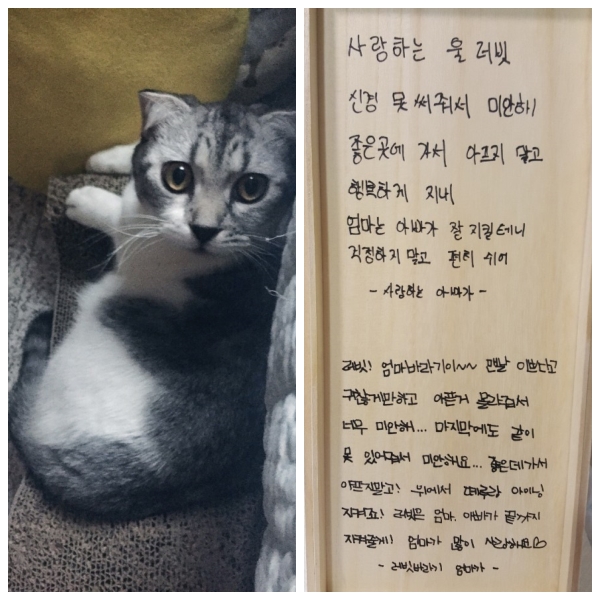 사랑하는 울 러빗
신경 못 써줘서 미안하
좋은곳에 가서 아프지 말고
행복하게 지내
엄마는 아빠가 잘 지킬테니
걱정하지 말고 편히 쉬어
- 사랑하는 아빠가 -
러빗! 엄마바라기이~~ 맨날 이쁘다고
귀찮게만하고 아픈거 몰라줘서
너무 미안해... 마지막에도 같이
못 있어줘서 미안해요... 좋은데가서
아프지말고! 위에서 아이닝
지켜줘! 러빗은 엄마. 아빠가 끝까지
지켜줄게! 엄마가 많이 사랑해요♡
- 러빗바라기 엄마가 -